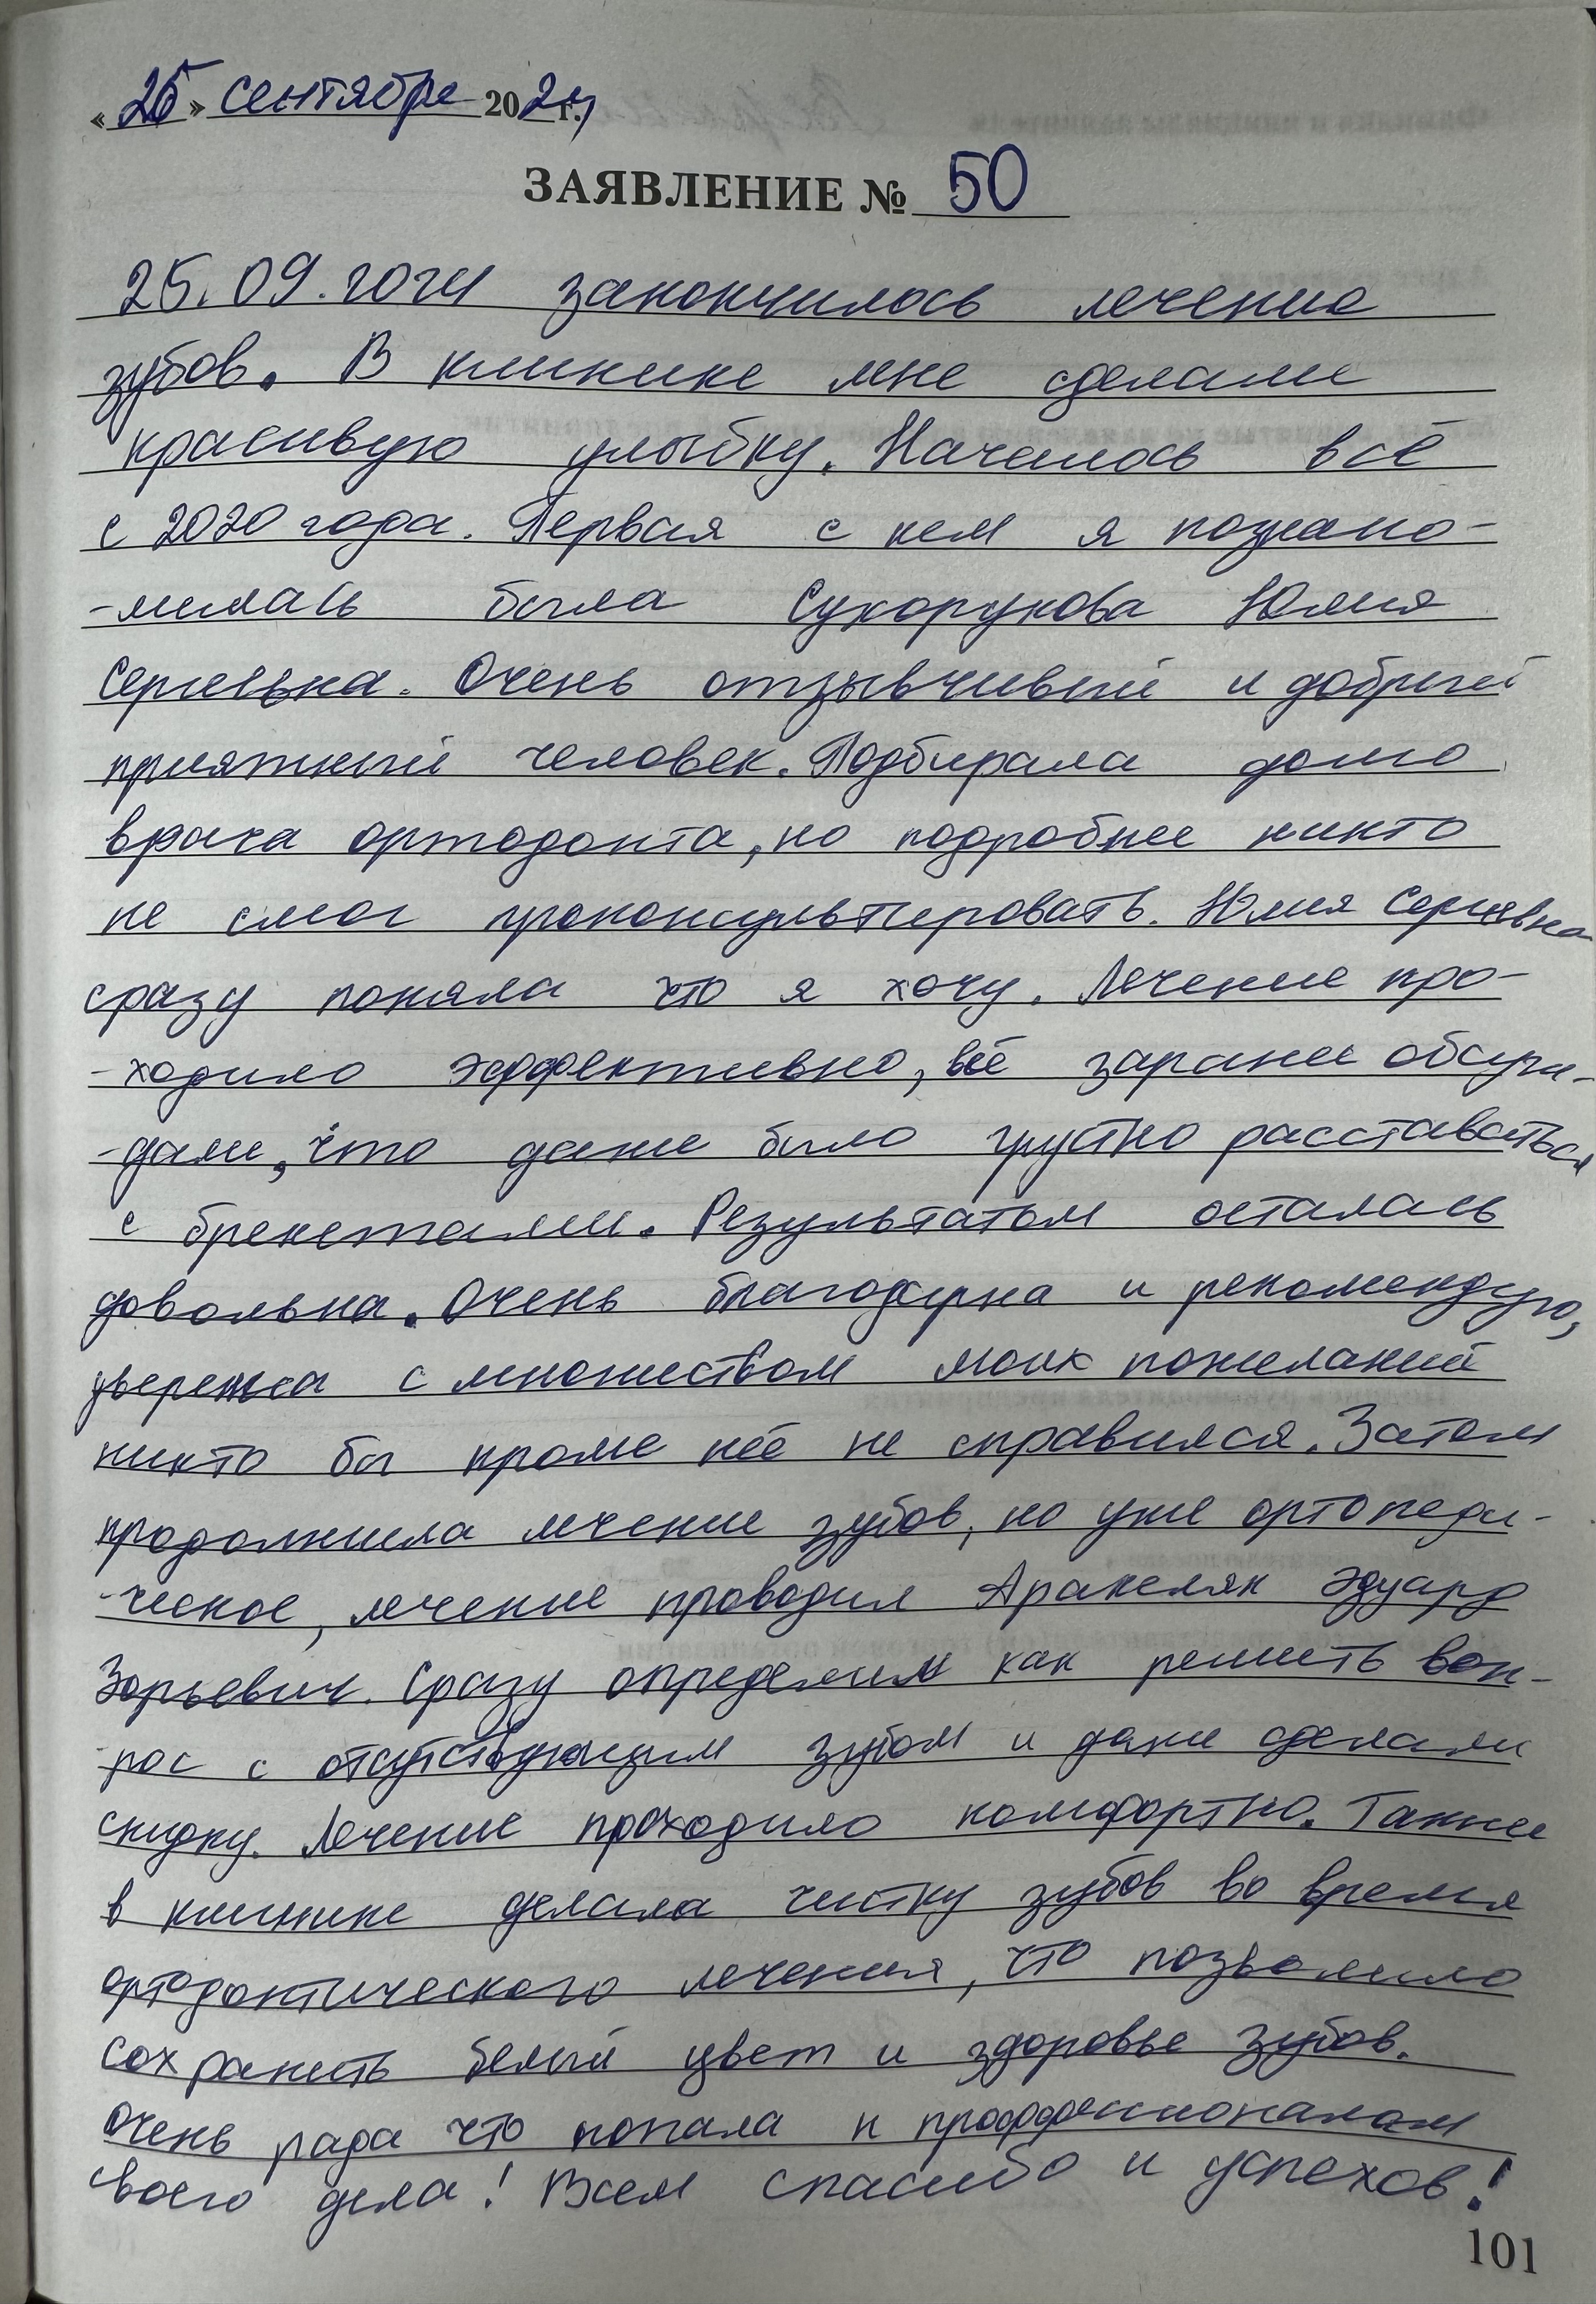 «25» сентября 2024 г.
ЗАЯВЛЕНИЕ № 50
25.09.2024 закончилось лечение
зубов. В клинике мне сделали
красивую улыбку. Началось всё
с 2020 года. Первая с кем я познако-
-милась была Сухорукова Юлия
Сергеевна. Очень отзывчивый и добрый
приятный человек. Подбирала долго
врача ортодонта, но подробнее никто
не смог проконсультировать. Юлия Сергеевна
сразу поняла что я хочу. Лечение про-
-ходило эффективно, всё заранее обсуж-
-дали, что даже было грустно расставаться
с брекетами. Результатом осталась
довольна. Очень благодарна и рекомендую,
уверенна с множеством моих пожеланий
никто бы кроме неё не справился. Затем
продолжила лечение зубов, но уже ортопеди-
-ческое, лечение проводил Аракелян Эдуард
Зорьевич. Сразу определили как решить воп-
-рос с отсутствующим зубом и даже сделали
скидку. Лечение проходило комфортно. Также
в клинике делала чистку зубов во время
ортодонтического лечения, что позволило
сохранить белый цвет и здоровье зубов.
Очень рада что попала к проффессионалам
своего дела! Всем спасибо и успехов!
101